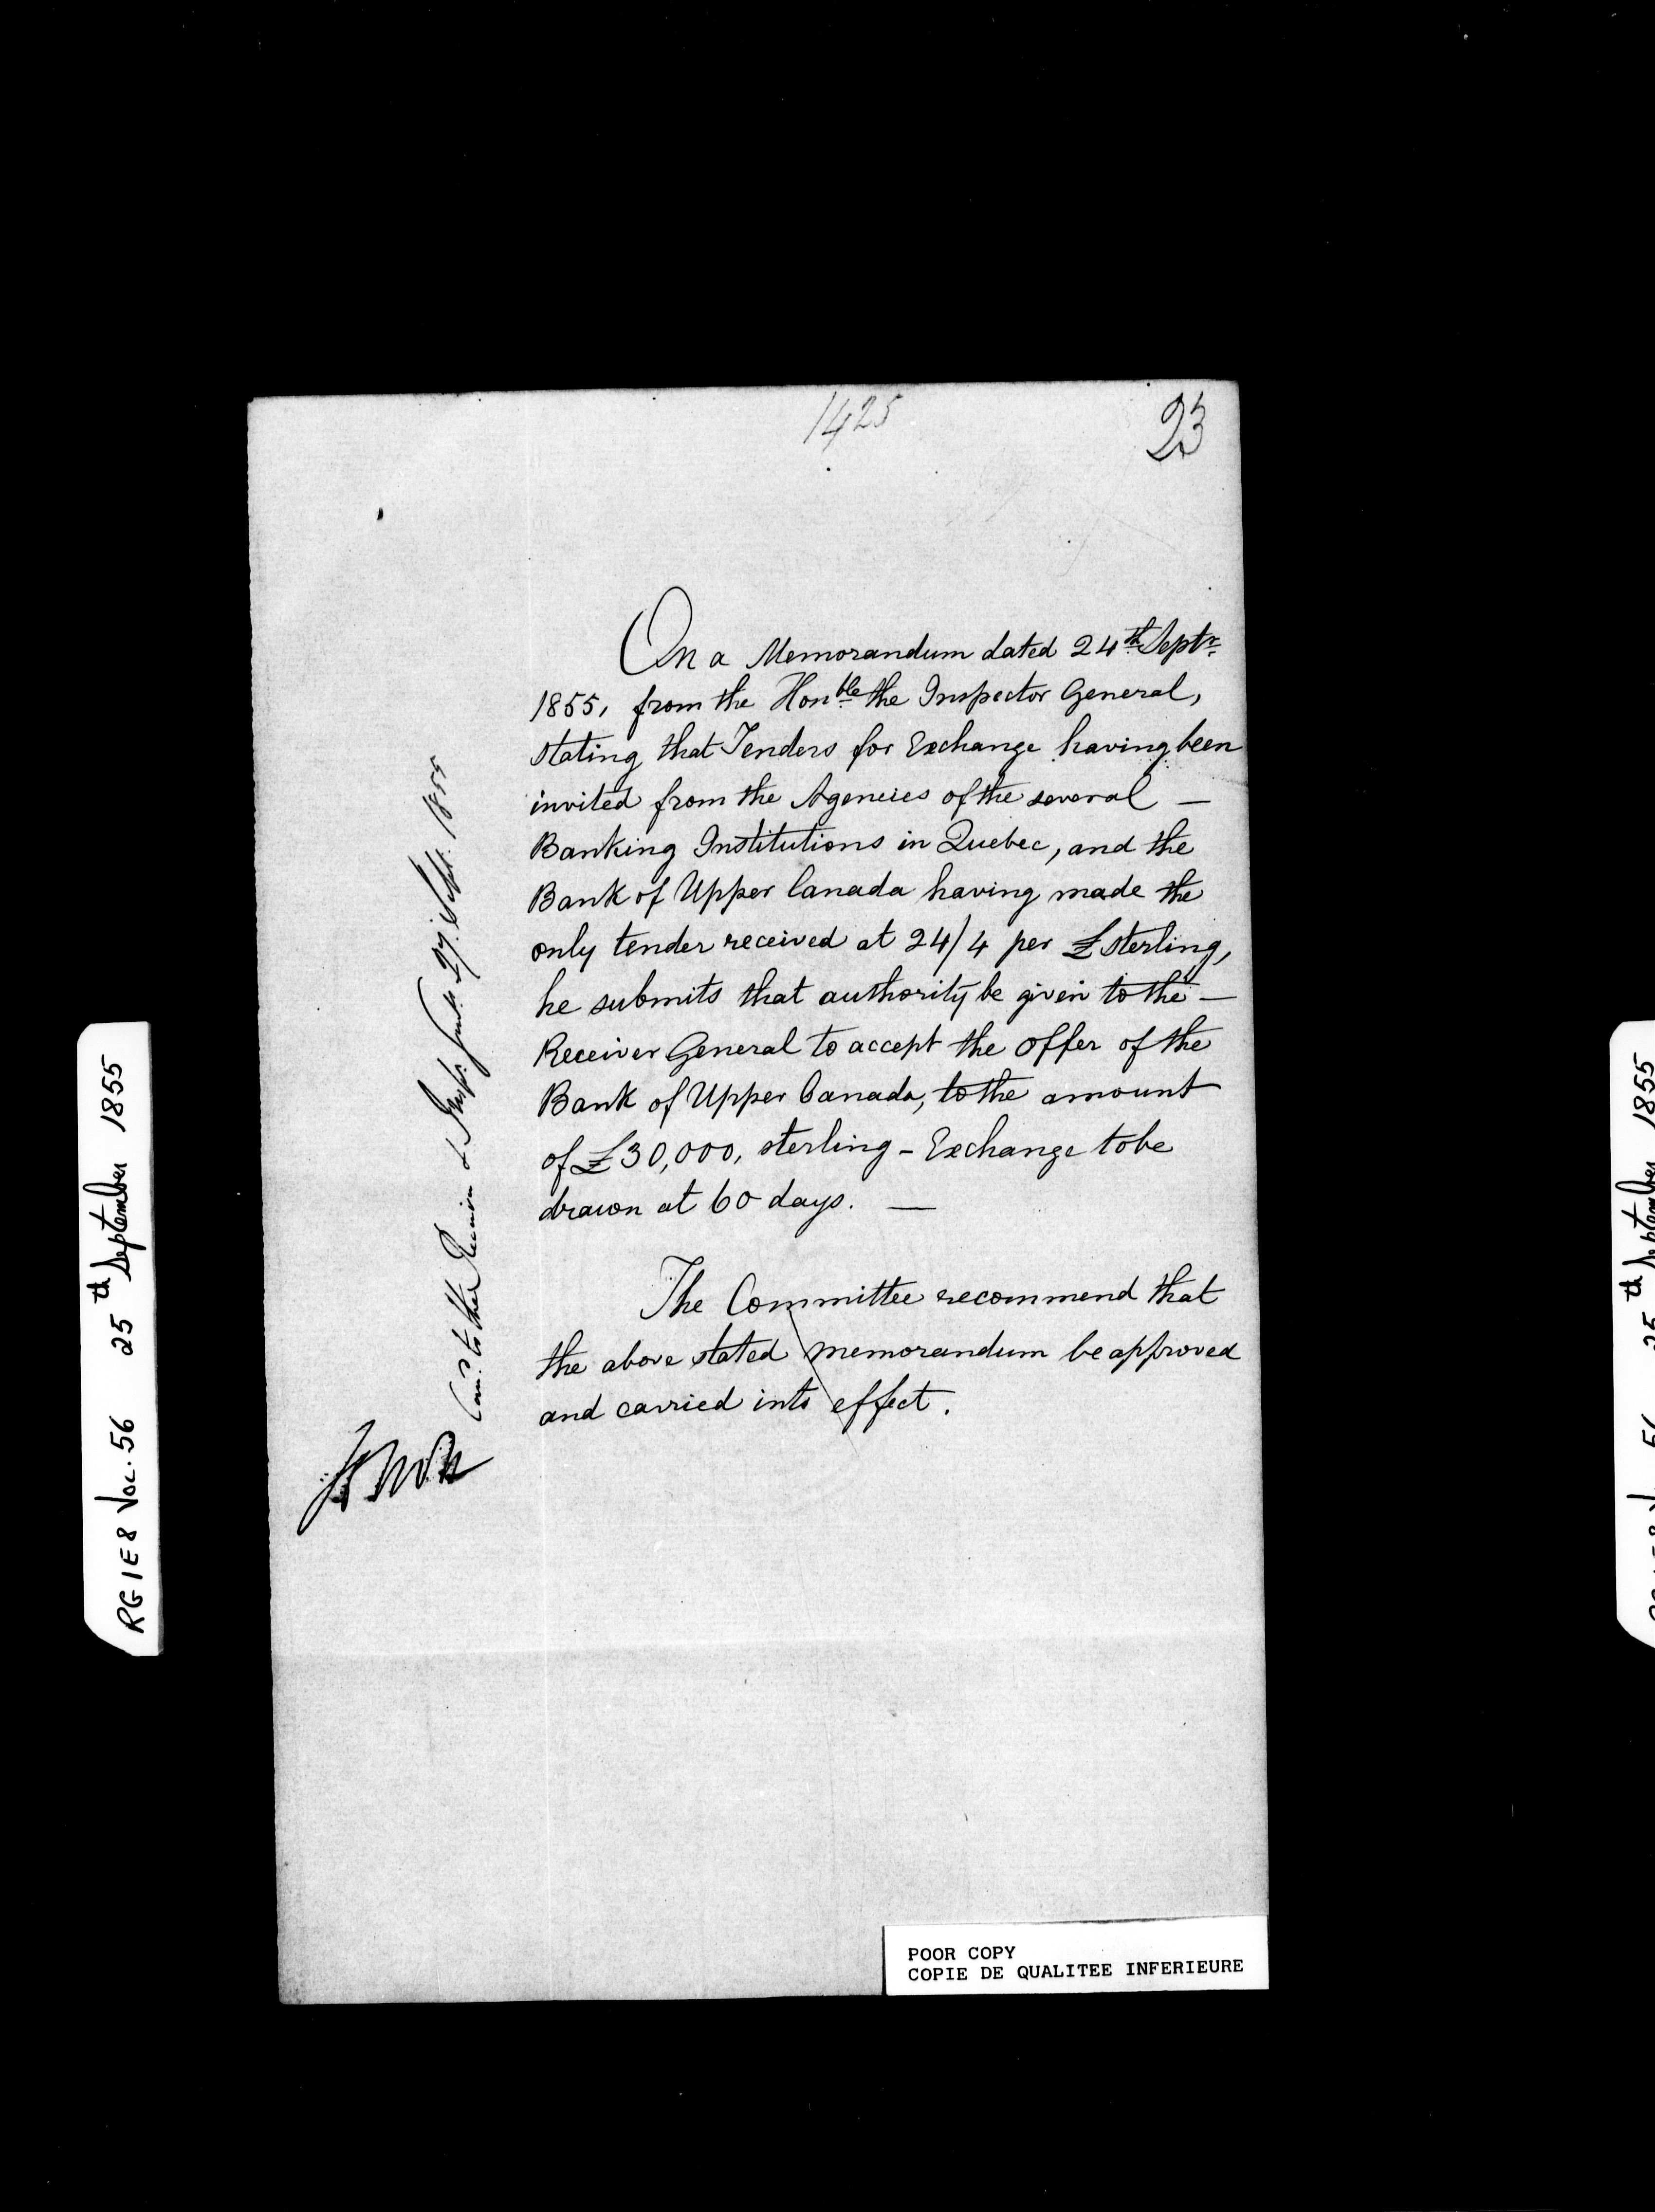 1425
23
On a Memorandum dated 24th Septr
1855, from the Honble the Inspector General,
stating that Tenders for Exchange having been
invited from the Agencies of the several —
Banking Institutions in Quebec, and the
Bank of Upper Canada having made the
only tender received at 24/4 per £ sterling,
he submits that authority be given to the —
Receiver General to accept the offer of the
Bank of Upper Canada, to the amount
of £30,000, sterling - Exchange to be
drawn at 60 days. —
The Committee recommend that
the above stated memorandum be approved
and carried into effect.
to the Receiver & Insp. Genl. 27. Sept. 1855
RG 1 E 8 Vol. 56 25th September 1855
25th September 1855
POOR COPY
COPIE DE QUALITEE INFERIEURE